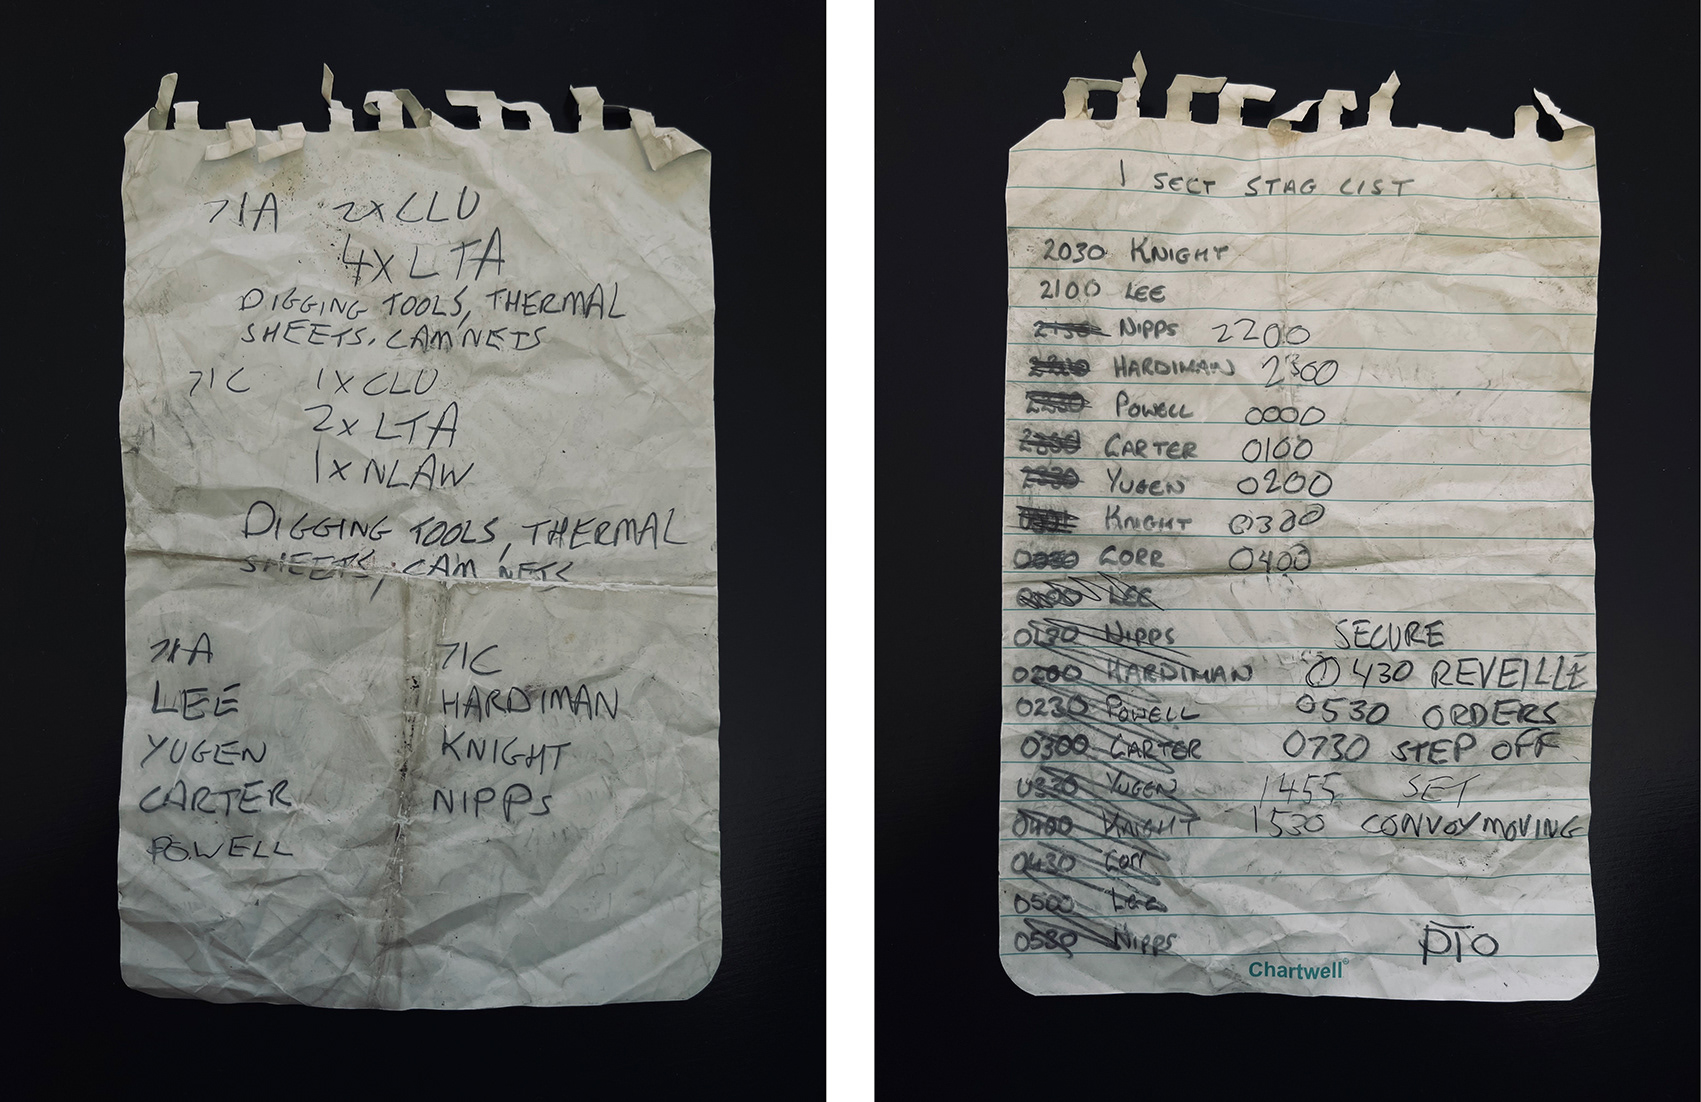 71A 2X CLU
4X LTA
DIGGING TOOLS, THERMAL
SHEETS, CAM NETS
71C 1X CLU
2X LTA
1X NLAW
DIGGING TOOLS, THERMAL
SHEETS, CAM NETS
71A 71C
LEE HARDIMAN
YUGEN KNIGHT
CARTER NIPPS
POWELL
1 SECT STAG LIST
2030 KNIGHT
2100 LEE
2130 NIPPS 2200
HARDIMAN 2300
POWELL 0000
CARTER 0100
YUGEN 0200
KNIGHT 0300
CORR 0400
LEE
NIPPS SECURE
0200 HARDIMAN 0430 REVEILLE
0230 POWELL 0530 ORDERS
0300 CARTER 0730 STEP OFF
0330 YUGEN 1455 SET
0400 KNIGHT 1530 CONVOY MOVING
0430 Corr
0500 Lee
0530 NIPPS PTO
Chartwell